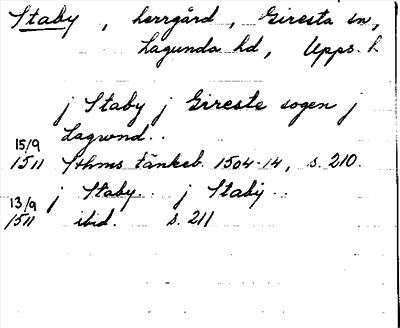 Staby, herrgård, Giresta sn,
Lagunda hd, Upps. l.
j Staby j Gireste sogen j
Lagwnd..
15/9
1511 Sthms tänkeb. 1504-14, s. 210.
j Staby.. j Staby..
13/9
1511 ibid. s. 211